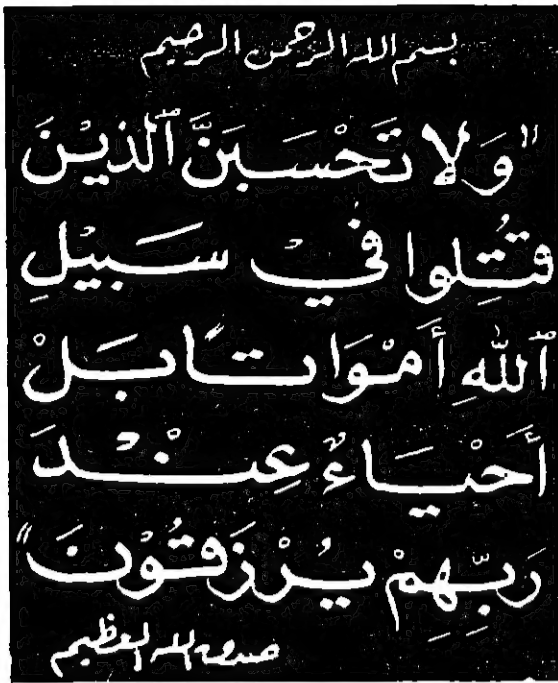 بسم الله الرحمن الرحيم
"وَلا تَحْسَبَنَّ ٱلذيْنَ
قُتِلوا فيْ سَبيْلِ
ٱللّٰهِ أَمْوَاتاً بَلْ
أَحْيَاءٌ عِنْدَ
رَبِّهِمْ يُرْزَقُوْنَ"
صدق الله العظيم